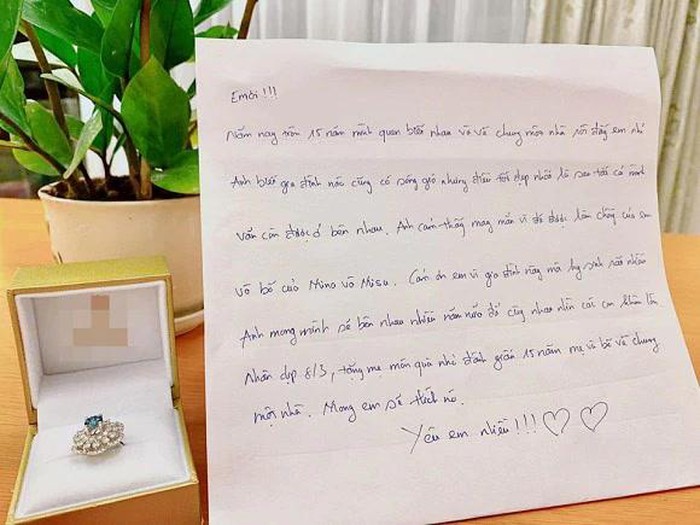 Em ơi !!!
Năm nay tròn 15 năm mình quen biết nhau và về chung một nhà rồi đấy em nhỉ
Anh biết gia đình nào cũng có sóng gió nhưng điều tốt đẹp nhất là sau tất cả mình
vẫn còn được ở bên nhau. Anh cảm thấy may mắn vì đã được làm chồng của em
và bố của Mina và Misu. Cám ơn em vì gia đình này mà hy sinh rất nhiều
Anh mong mình sẽ bên nhau nhiều năm nữa để cùng nhau nhìn các con khôn lớn
Nhân dịp 8/3, tặng mẹ món quà nhỏ đánh dấu 15 năm mẹ và bố về chung
một nhà. Mong em sẽ thích nó.
Yêu em nhiều !!!